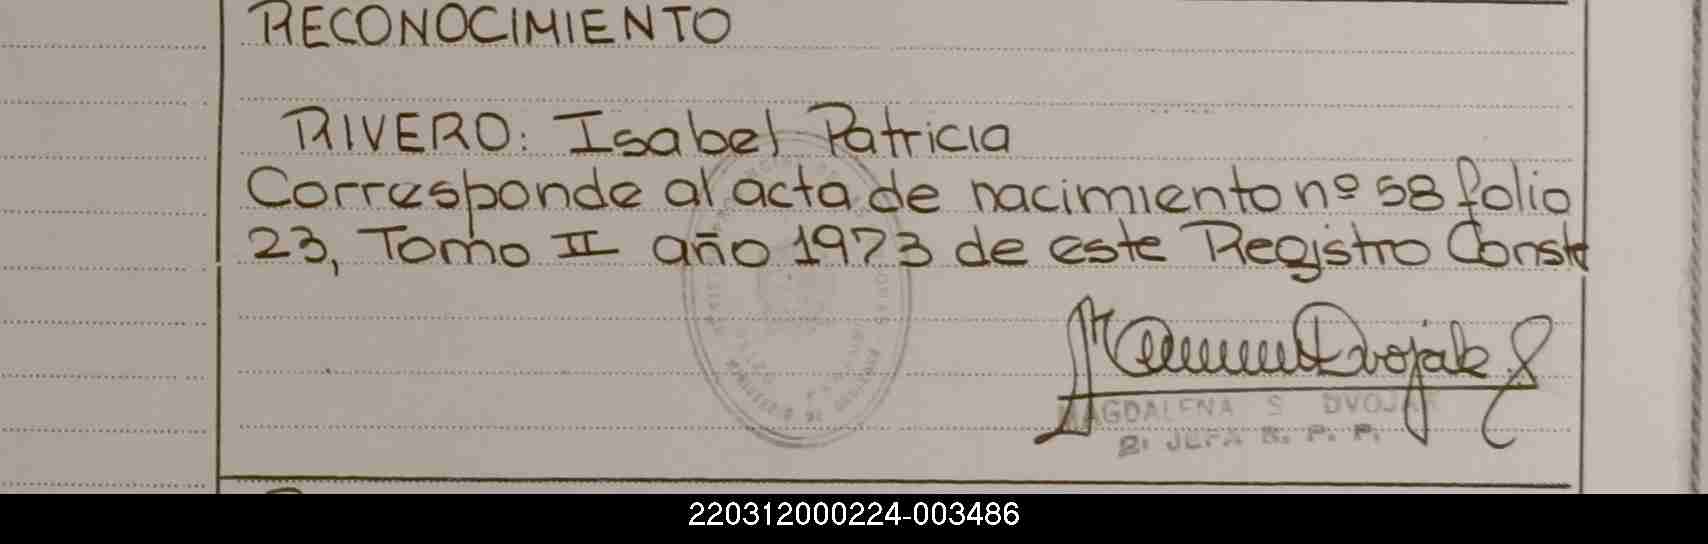 RECONOCIMIENTO
RIVERO: Isabel Patricia
Corresponde al acta de nacimiento nº 58 folio
23, Tomo II año 1973 de este Registro Conste
Dvojak
MAGDALENA S DVOJAK
JEFA R. P. P.
220312000224-003486